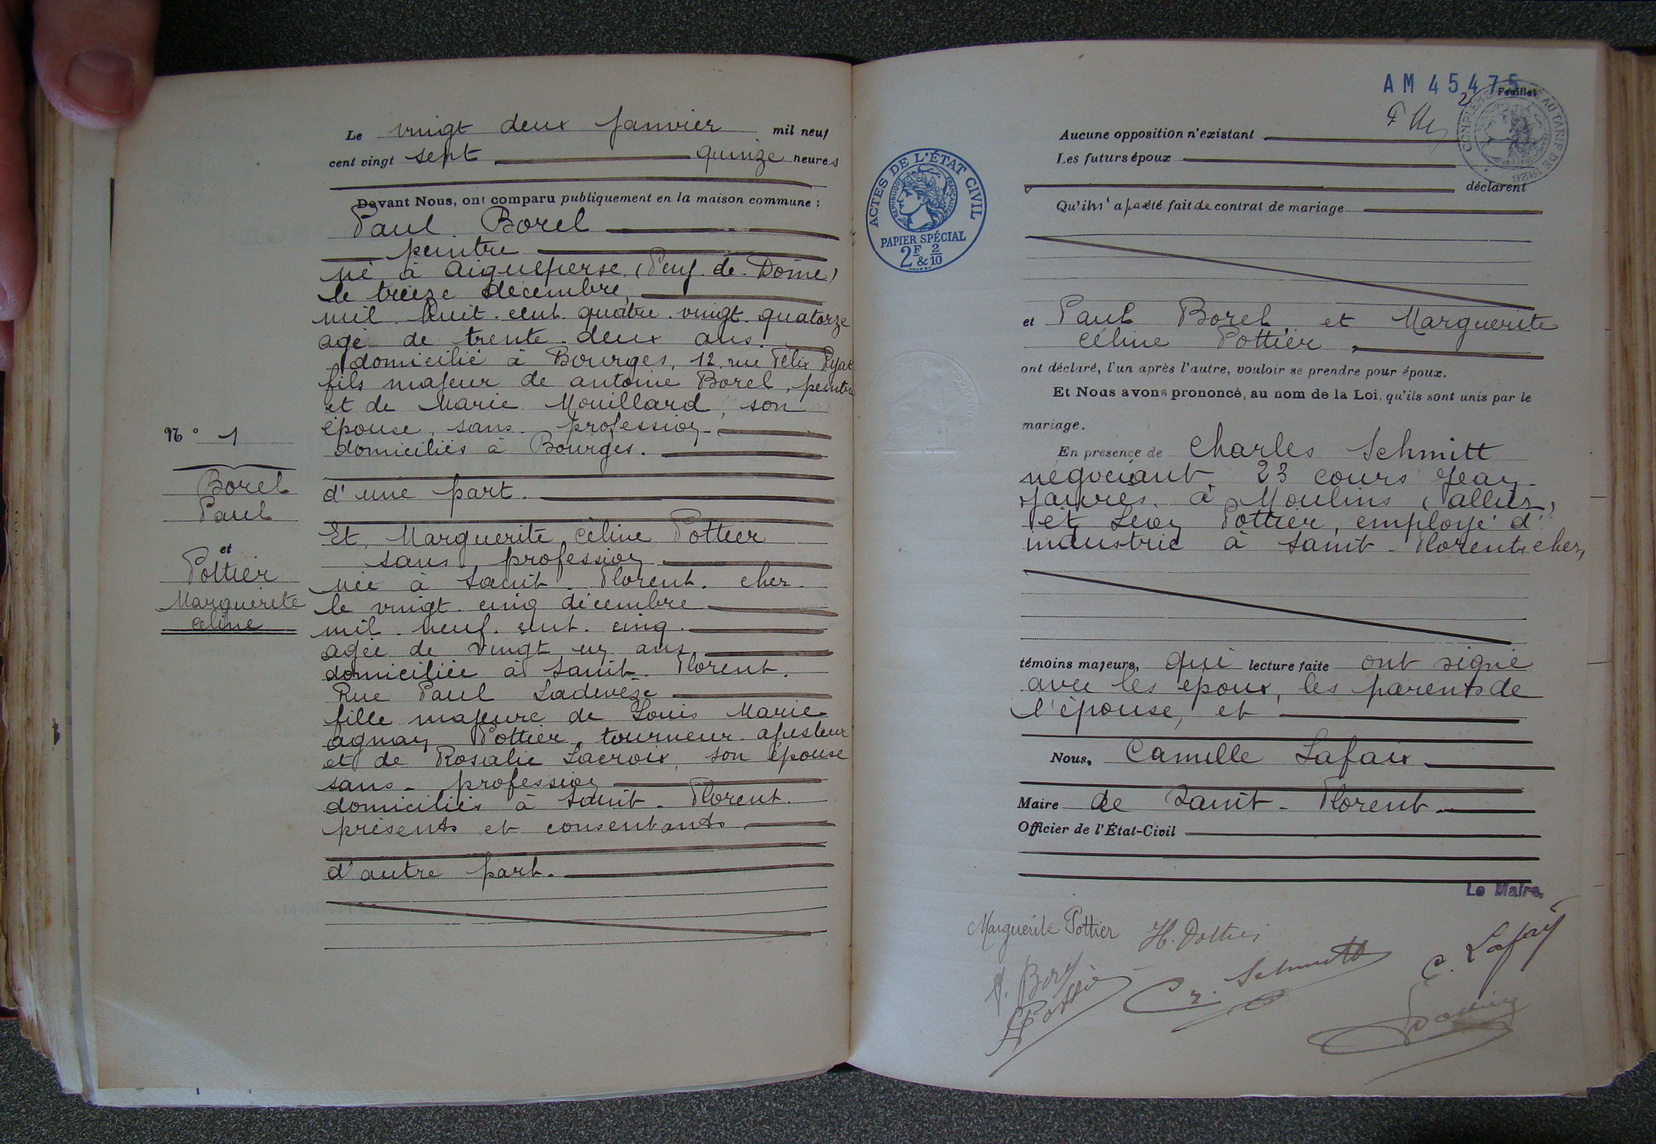 Le vingt deux Janvier mil neuf
cent vingt sept quinze heures
Devant Nous, ont comparu publiquement en la maison commune :
Paul Borel
peintre
né à Aigueperse (Puy de Dôme)
le treize décembre,
mil huit cent quatre vingt quatorze
age de trente deux ans.
domicilié à Bourges, 12, rue Félix Pyat
fils majeur de antoine Borel, peintre
et de Marie Mouillard, son
épouse, sans profession
domiciliés à Bourges.
d'une part.
Et Marguerite céline Pottier
sans profession
née à Saint Florent. cher.
le vingt cinq décembre
mil neuf cent cinq
agée de vingt un ans
domiciliée à Saint Florent.
Rue Paul Ladevèze
fille majeure de Louis Marie
Pottier, tourneur ajusteur
et de Rosalie Lacroix, son épouse
sans profession
domiciliés à Saint-Florent.
présents et consentants
d'autre part.
N° 1
Borel
Paul
et
Pottier
Marguerite
céline
AM 45475
Feuillet
2
Aucune opposition n'existant
Les futurs époux
déclarent
Qu'il n'a pas été fait de contrat de mariage
ACTES DE L'ÉTAT CIVIL
RÉPUBLIQUE FRANÇAISE
PAPIER SPÉCIAL
2F & 2/10
et Paul Borel et Marguerite
céline Pottier
ont déclaré, l'un après l'autre, vouloir se prendre pour époux.
Et Nous avons prononcé, au nom de la Loi, qu'ils sont unis par le
mariage.
En présence de Charles Schmitt
négociant 23 cours Jean
Jaurès à Moulins (allier)
et Léon Pottier, employé d'
industrie à Saint-Florent (cher)
témoins majeurs, qui lecture faite ont signé
avec les époux, les parents de
l'épouse, et
Nous, Camille Lafaix
Maire de Saint-Florent
Officier de l'État-Civil
Le Maire.
Marguerite Pottier
H. Pottier
P. Borel
C. Lafaix
Schmitt
Pottier
Pottier